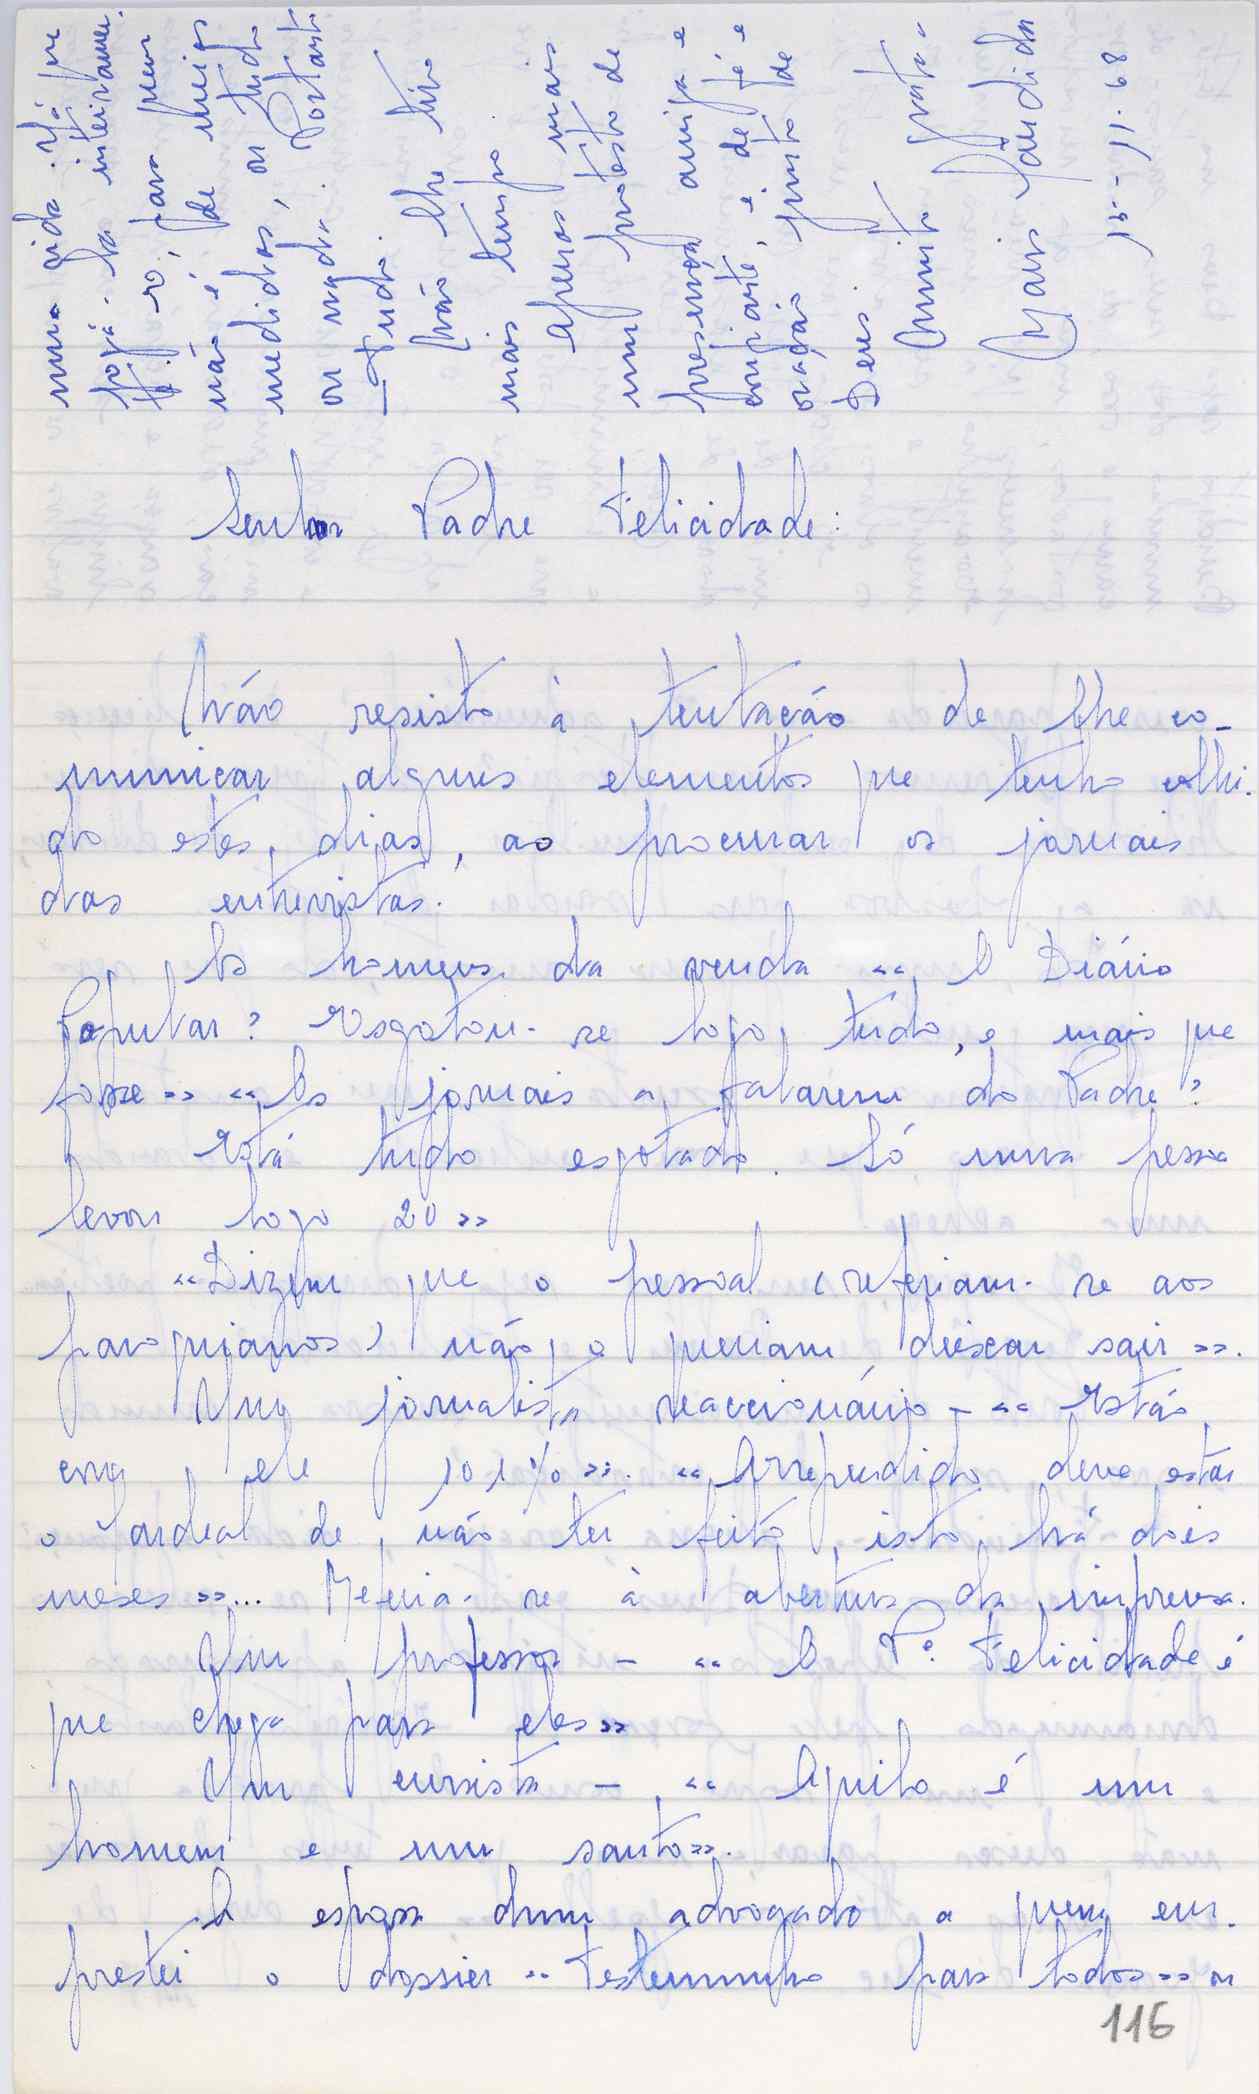 Senhor Padre Felicidade:
Não resisto à tentação de lhe co-
municar alguns elementos que tenho colhi-
do estes dias, ao procurar os jornais
das entrevistas.
Os homens da venda «O Diário
Popular? Esgotou-se logo tudo, e mais que
fosse» «Os jornais a falarem do Padre?
Está tudo esgotado. Só uma pessoa
levou logo 20»
«Dizem que o pessoal (referiam-se aos
paroquianos) não o queriam deixar sair».
Um jornalista reaccionário – «Estão
em ele 101%». «Arrependido deve estar
o Cardeal de não ter feito isto há dois
meses»... Referia-se à abertura da imprensa.
Um professor – «O Pe. Felicidade é
que chega para eles»
Um cursista – «Aquilo é um
homem e um santo».
A esposa dum advogado a quem em-
prestei o dossier «Testemunho para todos» ou
116
uma vida. Há que
jogá-la inteiramen-
te só, para quem
não é de meias
medidas, ou tudo
ou nada. Portanto
– tudo.
Não lhe tiro
mais tempo.
Apenas mais
um protesto de
presença amiga e
confiante, e de fé e
oração junto de
Deus.
Muito grata
Maria Cândida
15-11-68